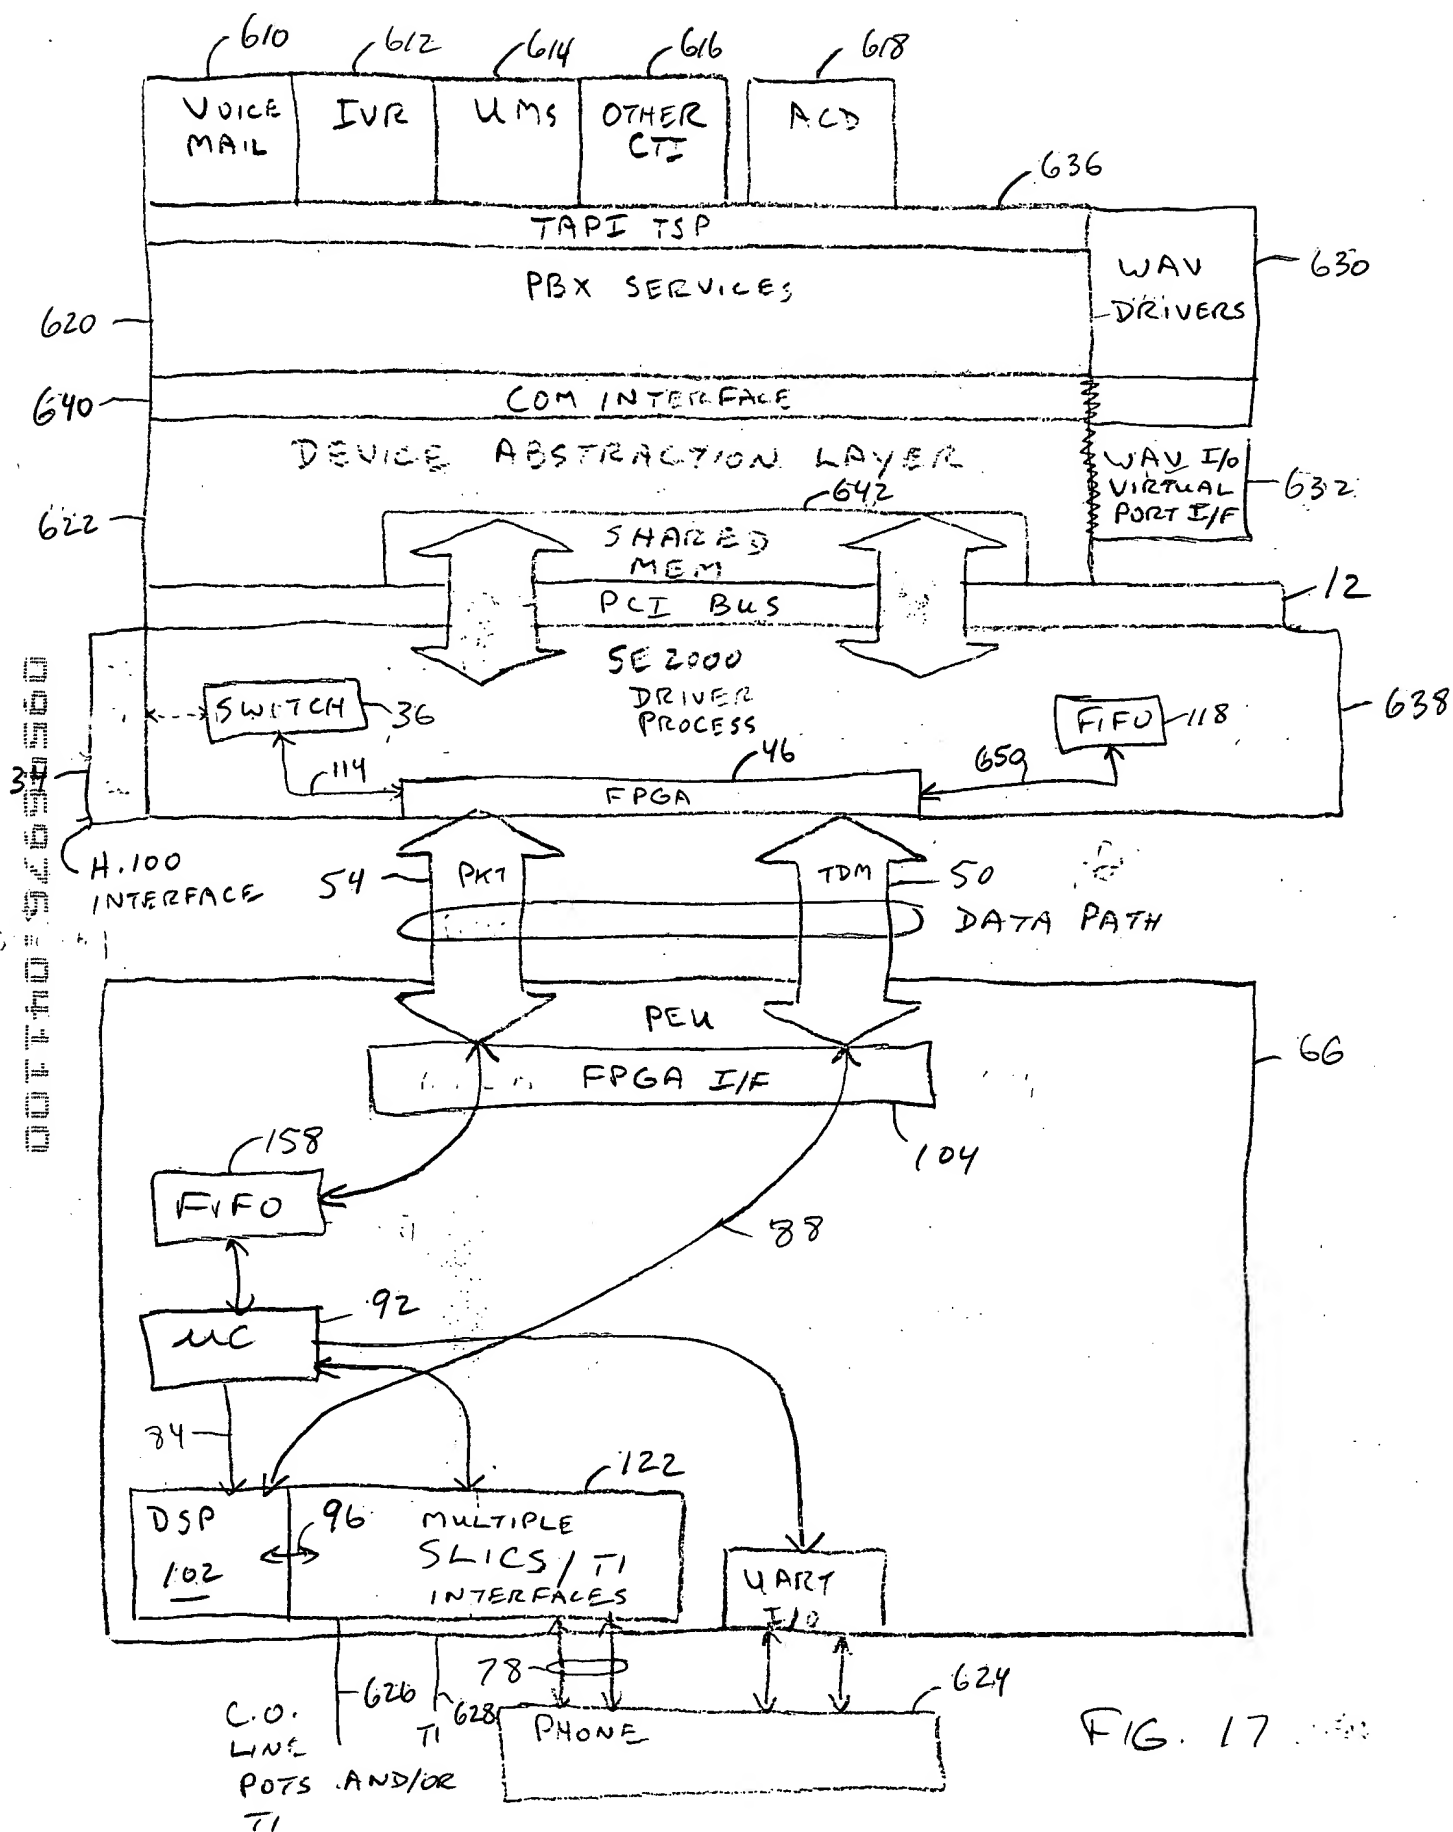 610
612
614
616
618
VOICE
MAIL
IVR
UMS
OTHER
CTI
ACD
636
TAPI TSP
WAV
DRIVERS
630
PBX SERVICES
620
640
COM INTERFACE
DEVICE ABSTRACTION LAYER
WAV I/O
VIRTUAL
PORT I/F
632
642
622
SHARED
MEM
PCI BUS
12
SE2000
DRIVER
PROCESS
SWITCH
36
FIFO
118
638
114
46
650
FPGA
H.100
INTERFACE
54
PKT
TDM
50
DATA PATH
09545975-041100
PEU
66
FPGA I/F
104
158
FIFO
88
92
UC
84
122
DSP
102
96
MULTIPLE
SLICS/T1
INTERFACES
UART
I/O
78
626
628
624
C.O.
LINE
POTS AND/OR
T1
T1
PHONE
FIG. 17